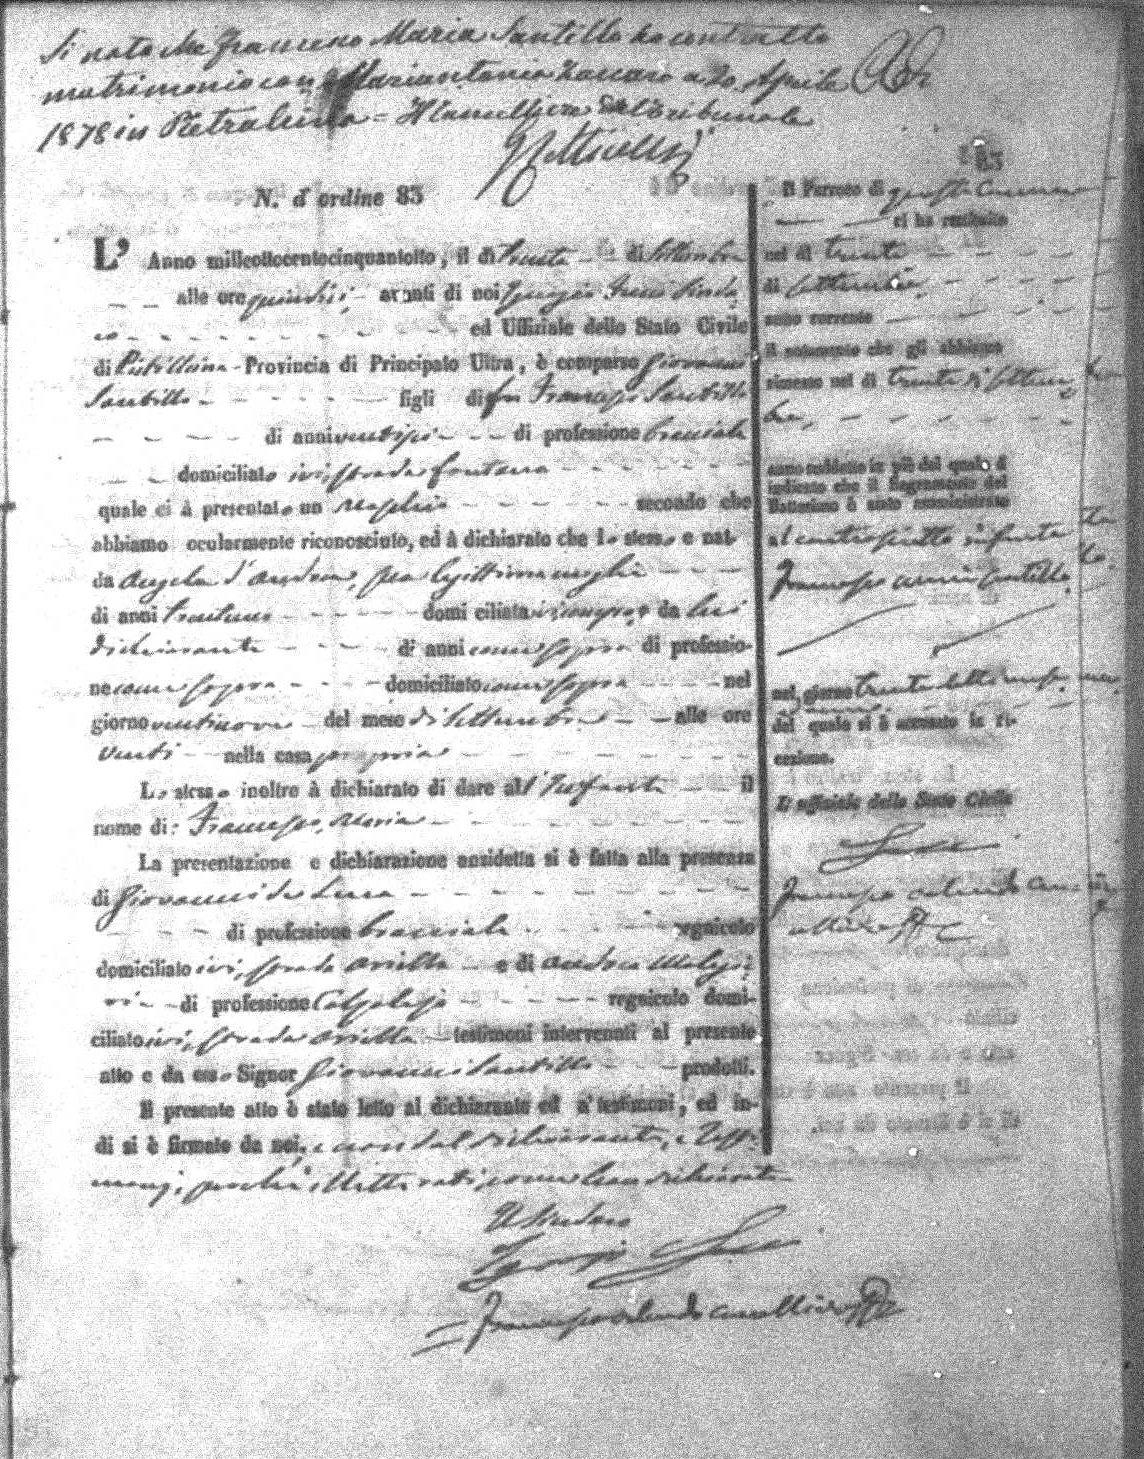 Si nota che Francesco Maria Santillo ha contratto
matrimonio con Mariantonia Zaccaro a 20 Aprile
1878 in Pietrelcina = Il Cancelliere del Tribunale
83
N. d'ordine 83
L' Anno millecottocentocinquantotto, il dì trenta di Settembre
alle ore quindici avanti di noi Giorgio Iesce Sinda
co ed Uffiziale dello Stato Civile
di Pietrelcina Provincia di Principato Ultra, è comparso Giovanni
Santillo figli di fu Francesco Santillo
di anni ventisei di professione bracciale
domiciliato ivi, strada fontana
quale ci à presentato un maschio secondo che
abbiamo ocularmente riconosciuto, ed à dichiarato che lo stesso e nat
da Angela d'Andrea, sua legittima moglie
di anni trentuno domi ciliata ivi, e da lui
dichiarante di anni come sopra di professio-
ne come sopra domiciliato come sopra nel
giorno ventinove del mese di Settembre alle ore
venti nella casa propria
Lo stesso inoltre à dichiarato di dare all'Infante il
nome di: Francesco Maria
La presentazione e dichiarazione anzidetta si è fatta alla presenza
di Giovanni de Luca
di professione bracciale regnicolo
domiciliato ivi, strada e di Andrea
di professione Calzolajo regnicolo domi-
ciliato ivi, strada testimoni intervenuti al presente
atto e da esso Signor Giovanni Santillo prodotti.
Il presente atto è stato letto al dichiarante ed a' testimoni, ed in-
di si è firmato da noi, e non dal dichiarante, e Testi-
monj, perchè illetterati come han dichiarato
Il Sindaco
Giorgio Iesce
Il Parroco di questo Comune
ci ha restituito
nel dì trenta
di Settembre
anno corrente
il notamento che gli abbiamo
rimesso nel dì trenta di Settem
bre,
anno suddetto in piè del quale à
indicato che il Sagramento del
Battesimo è stato amministrato
al controscritto infante
Francesco Maria Santillo
nel giorno trenta detto mese
del quale si è accusato la ri-
cezione.
L' uffiziale dello Stato Civile
Iesce